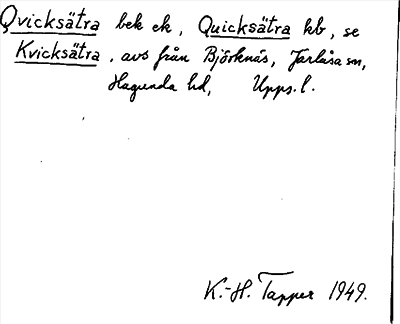 Qvicksätra bek ek, Quicksätra kb, se
Kvicksätra, avs från Björknäs, Jarlåsa sn,
Hagunda hd, Upps. l.
K.-H. Tapper 1949.